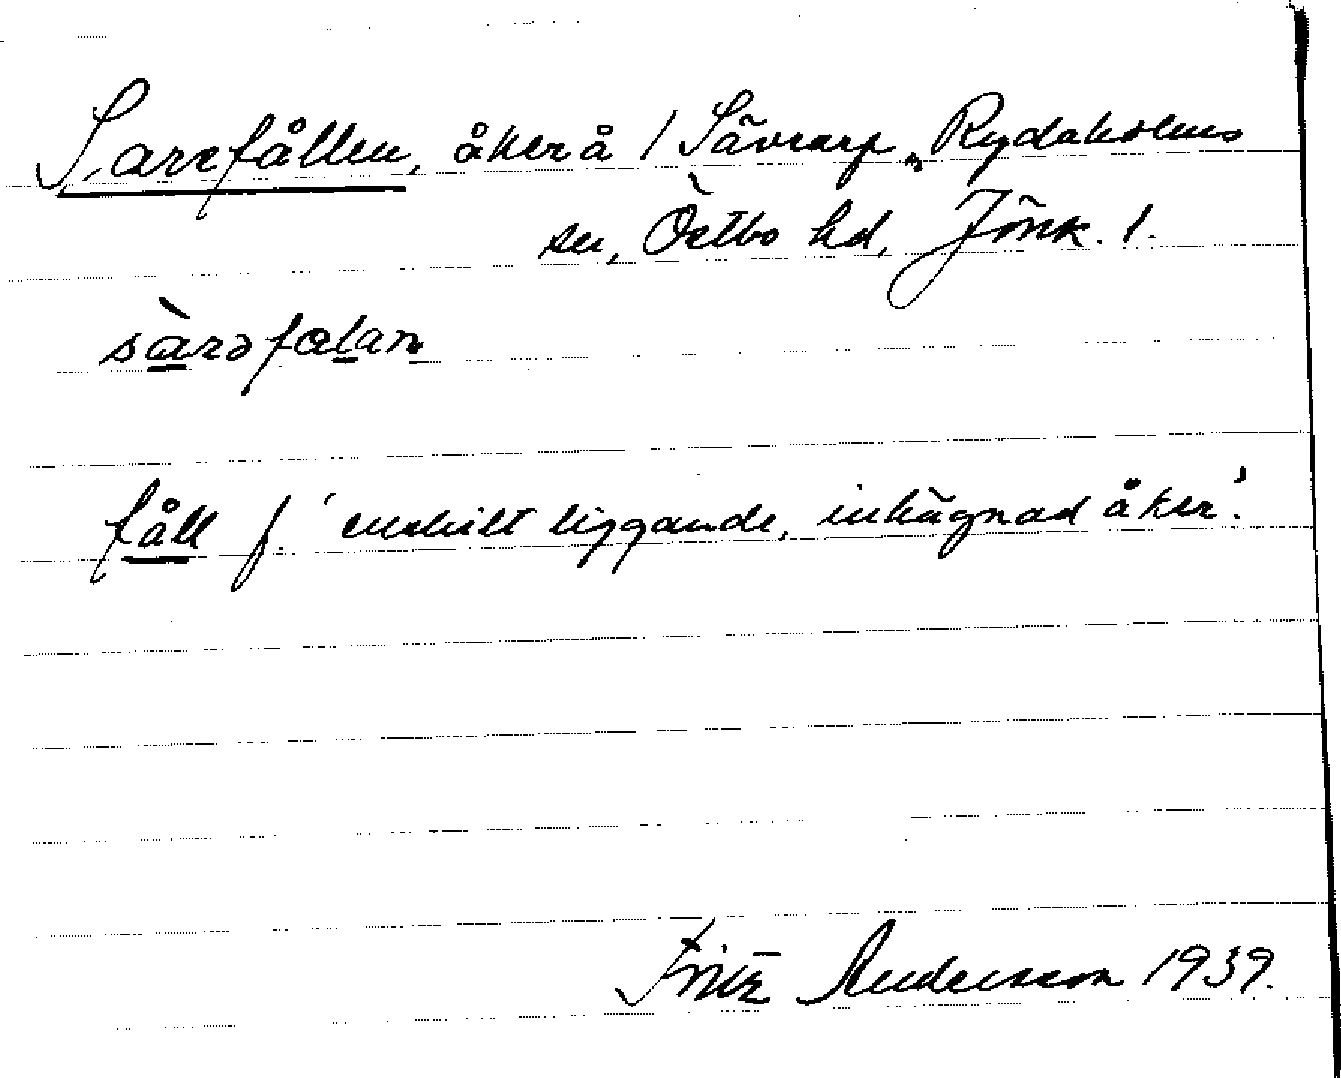 Sarefållen, åker å 1 Sävrarp, Rydaholms
sn, Östbo hd, Jönk. l.
sàrəfɑlan
fåll f. 'enskilt liggande, inhägnad åker'.
Fritz Andersson 1939.